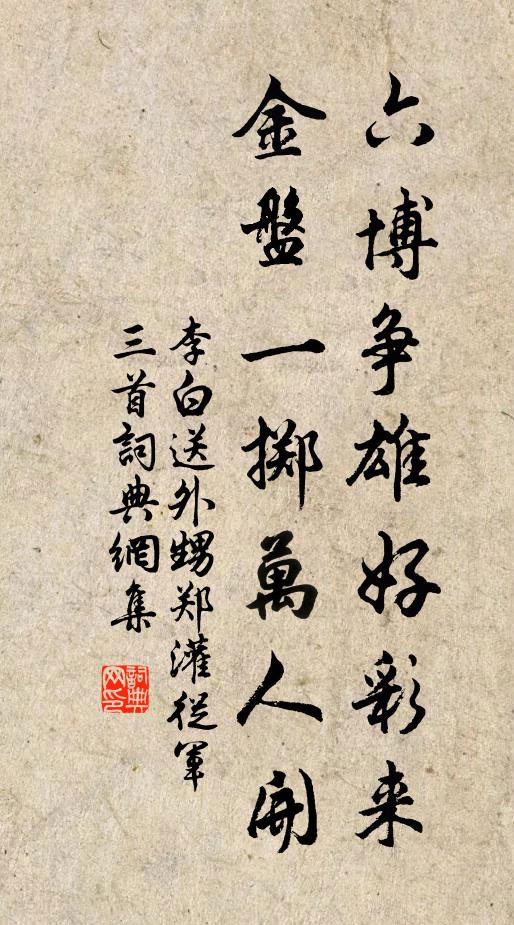 六博争雄好彩来
金盤一擲萬人開
李白送外甥郑灌從軍
三首詞典網集
詞典
网印